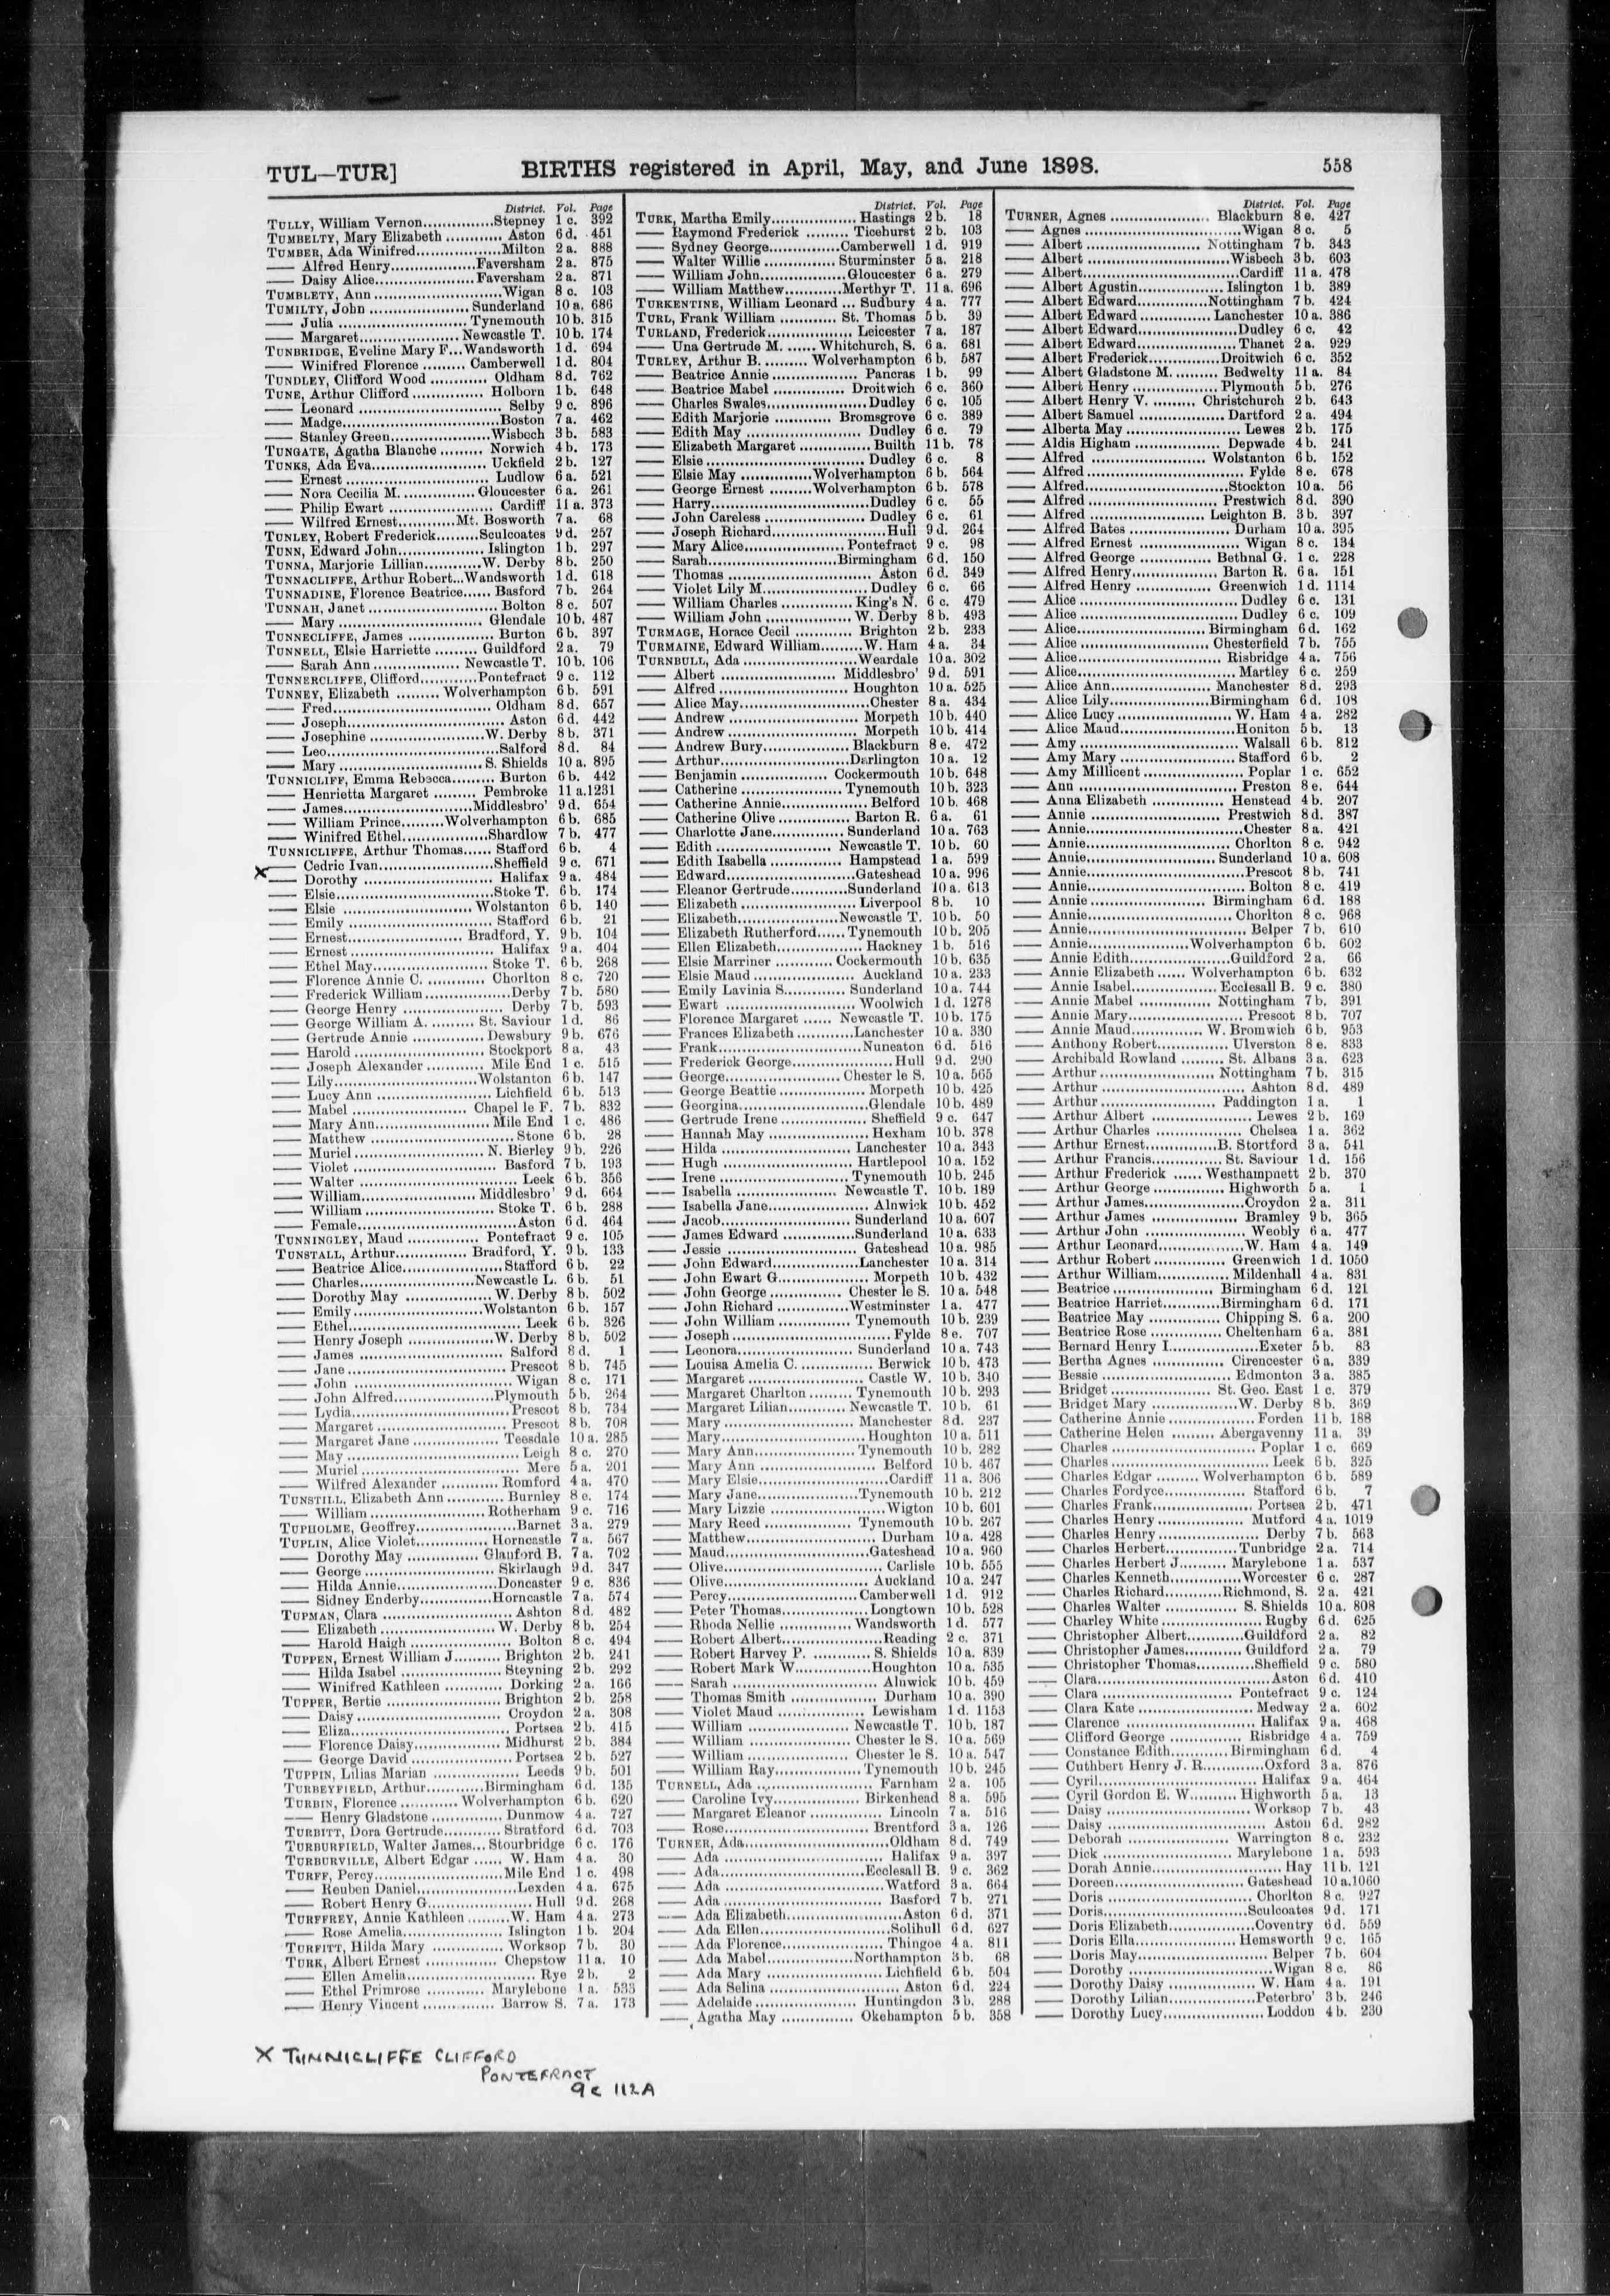 TUL—TUR] BIRTHS registered in April, May, and June 1898. 558
District. Vol. Page
TULLY, William Vernon.............Stepney 1 c. 392
TUMBELTY, Mary Elizabeth ............ Aston 6 d. 451
TUMBER, Ada Winifred.................Milton 2 a. 888
—— Alfred Henry.................Faversham 2 a. 875
—— Daisy Alice....................Faversham 2 a. 871
TUMBLETY, Ann ..........................Wigan 8 c. 103
TUMILTY, John .................... Sunderland 10 a. 686
—— Julia .......................... Tynemouth 10 b. 315
—— Margaret.....................Newcastle T. 10 b. 174
TUNBRIDGE, Eveline Mary F...Wandsworth 1 d. 694
—— Winifred Florence ......... Camberwell 1 d. 804
TUNDLEY, Clifford Wood ............ Oldham 8 d. 762
TUNE, Arthur Clifford .............. Holborn 1 b. 648
—— Leonard ............................. Selby 9 c. 896
—— Madge................................Boston 7 a. 462
—— Stanley Green....................Wisbech 3 b. 583
TUNGATE, Agatha Blanche ......... Norwich 4 b. 173
TUNKS, Ada Eva....................... Uckfield 2 b. 127
—— Ernest ............................. Ludlow 6 a. 521
—— Nora Cecilia M. .............. Gloucester 6 a. 261
—— Philip Ewart ..................... Cardiff 11 a. 373
—— Wilfred Ernest...........Mt. Bosworth 7 a. 68
TUNLEY, Robert Frederick.........Sculcoates 9 d. 257
TUNN, Edward John.................. Islington 1 b. 297
TUNNA, Marjorie Lillian............W. Derby 8 b. 250
TUNNACLIFFE, Arthur Robert...Wandsworth 1 d. 618
TUNNADINE, Florence Beatrice...... Basford 7 b. 264
TUNNAH, Janet .......................... Bolton 8 c. 507
—— Mary ............................. Glendale 10 b. 487
TUNNECLIFFE, James ................. Burton 6 b. 397
TUNNELL, Elsie Harriette ......... Guildford 2 a. 79
—— Sarah Ann .................. Newcastle T. 10 b. 106
TUNNERCLIFFE, Clifford............Pontefract 9 c. 112
TUNNEY, Elizabeth ......... Wolverhampton 6 b. 591
—— Fred................................ Oldham 8 d. 657
—— Joseph................................ Aston 6 d. 442
—— Josephine .......................W. Derby 8 b. 371
—— Leo...................................Salford 8 d. 84
—— Mary ............................. S. Shields 10 a. 895
TUNNICLIFF, Emma Rebecca......... Burton 6 b. 442
—— Henrietta Margaret ......... Pembroke 11 a. 1231
—— James..........................Middlesbro' 9 d. 654
—— William Prince.........Wolverhampton 6 b. 685
—— Winifred Ethel..................Shardlow 7 b. 477
TUNNICLIFFE, Arthur Thomas...... Stafford 6 b. 4
—— Cedric Ivan.......................Sheffield 9 c. 671
X —— Dorothy .......................... Halifax 9 a. 484
—— Elsie................................Stoke T. 6 b. 174
—— Elsie .......................... Wolstanton 6 b. 140
—— Emily .............................. Stafford 6 b. 21
—— Ernest....................... Bradford, Y. 9 b. 104
—— Ernest ............................. Halifax 9 a. 404
—— Ethel May....................... Stoke T. 6 b. 268
—— Florence Annie C. ............ Chorlton 8 c. 720
—— Frederick William..................Derby 7 b. 580
—— George Henry ..................... Derby 7 b. 593
—— George William A. ......... St. Saviour 1 d. 86
—— Gertrude Annie ............... Dewsbury 9 b. 676
—— Harold ........................... Stockport 8 a. 43
—— Joseph Alexander ............ Mile End 1 c. 515
—— Lily.............................Wolstanton 6 b. 147
—— Lucy Ann ....................... Lichfield 6 b. 513
—— Mabel ....................... Chapel le F. 7 b. 832
—— Mary Ann........................Mile End 1 c. 486
—— Matthew .............................. Stone 6 b. 28
—— Muriel ........................... N. Bierley 9 b. 226
—— Violet ............................. Basford 7 b. 193
—— Walter ................................ Leek 6 b. 356
—— William........................ Middlesbro' 9 d. 664
—— William ........................... Stoke T. 6 b. 288
—— Female................................Aston 6 d. 464
TUNNINGLEY, Maud .............. Pontefract 9 c. 105
TUNSTALL, Arthur............... Bradford, Y. 9 b. 133
—— Beatrice Alice.....................Stafford 6 b. 22
—— Charles........................Newcastle L. 6 b. 51
—— Dorothy May ................... W. Derby 8 b. 502
—— Emily ...........................Wolstanton 6 b. 157
—— Ethel................................... Leek 6 b. 326
—— Henry Joseph ..................W. Derby 8 b. 502
—— James ............................. Salford 8 d. 1
—— Jane ................................. Prescot 8 b. 745
—— John ................................. Wigan 8 c. 171
—— John Alfred.....................Plymouth 5 b. 264
—— Lydia................................Prescot 8 b. 734
—— Margaret ........................... Prescot 8 b. 708
—— Margaret Jane ................. Teesdale 10 a. 285
—— May ................................... Leigh 8 c. 270
—— Muriel ................................. Mere 5 a. 201
—— Wilfred Alexander ............ Romford 4 a. 470
TUNSTILL, Elizabeth Ann ............ Burnley 8 e. 174
—— William ........................ Rotherham 9 c. 716
TUPHOLME, Geoffrey.....................Barnet 3 a. 279
TUPLIN, Alice Violet............... Horncastle 7 a. 567
—— Dorothy May .............. Glanford B. 7 a. 702
—— George ........................... Skirlaugh 9 d. 347
—— Hilda Annie.....................Doncaster 9 c. 836
—— Sidney Enderby...............Horncastle 7 a. 574
TUPMAN, Clara .......................... Ashton 8 d. 482
—— Elizabeth ........................ W. Derby 8 b. 254
—— Harold Haigh ..................... Bolton 8 c. 494
TUPPEN, Ernest William J.......... Brighton 2 b. 241
—— Hilda Isabel ..................... Steyning 2 b. 292
—— Winifred Kathleen ............ Dorking 2 a. 166
TUPPER, Bertie ........................ Brighton 2 b. 258
—— Daisy ............................. Croydon 2 a. 308
—— Eliza................................. Portsea 2 b. 415
—— Florence Daisy.................. Midhurst 2 b. 384
—— George David ..................... Portsea 2 b. 527
TUPPIN, Lilias Marian .................. Leeds 9 b. 501
TURBEYFIELD, Arthur............Birmingham 6 d. 135
TURBIN, Florence ............ Wolverhampton 6 b. 620
—— Henry Gladstone ............... Dunmow 4 a. 727
TURBITT, Dora Gertrude............ Stratford 6 d. 703
TURBURFIELD, Walter James... Stourbridge 6 c. 176
TURBURVILLE, Albert Edgar ...... W. Ham 4 a. 30
TURFF, Percy..........................Mile End 1 c. 498
—— Reuben Daniel.....................Lexden 4 a. 675
—— Robert Henry G...................... Hull 9 d. 268
TURFFREY, Annie Kathleen .........W. Ham 4 a. 273
—— Rose Amelia..................... Islington 1 b. 204
TURFITT, Hilda Mary ............... Worksop 7 b. 30
TURK, Albert Ernest ............... Chepstow 11 a. 10
—— Ellen Amelia........................... Rye 2 b. 2
—— Ethel Primrose ............ Marylebone 1 a. 535
—— Henry Vincent ............... Barrow S. 7 a. 173
District. Vol. Page
TURK, Martha Emily.................. Hastings 2 b. 18
—— Raymond Frederick ......... Ticehurst 2 b. 103
—— Sydney George...............Camberwell 1 d. 919
—— Walter Willie ............... Sturminster 5 a. 218
—— William John..................Gloucester 6 a. 279
—— William Matthew............Merthyr T. 11 a. 696
TURKENTINE, William Leonard ... Sudbury 4 a. 777
TURL, Frank William ............ St. Thomas 5 b. 39
TURLAND, Frederick.................. Leicester 7 a. 187
—— Una Gertrude M. ...... Whitchurch, S. 6 a. 681
TURLEY, Arthur B. ......... Wolverhampton 6 b. 587
—— Beatrice Annie .................. Pancras 1 b. 99
—— Beatrice Mabel ............... Droitwich 6 c. 360
—— Charles Swales.....................Dudley 6 c. 105
—— Edith Marjorie ............ Bromsgrove 6 c. 389
—— Edith May ........................ Dudley 6 c. 79
—— Elizabeth Margaret ............... Builth 11 b. 78
—— Elsie ................................. Dudley 6 c. 8
—— Elsie May ...............Wolverhampton 6 b. 564
—— George Ernest .........Wolverhampton 6 b. 578
—— Harry.................................Dudley 6 c. 55
—— John Careless ..................... Dudley 6 c. 61
—— Joseph Richard........................Hull 9 d. 264
—— Mary Alice..................... Pontefract 9 c. 98
—— Sarah...........................Birmingham 6 d. 150
—— Thomas .............................. Aston 6 d. 349
—— Violet Lily M...................... Dudley 6 c. 66
—— William Charles ............... King's N. 6 c. 479
—— William John .................. W. Derby 8 b. 493
TURMAGE, Horace Cecil ............ Brighton 2 b. 233
TURMAINE, Edward William.........W. Ham 4 a. 34
TURNBULL, Ada ........................Weardale 10 a. 302
—— Albert ........................ Middlesbro' 9 d. 591
—— Alfred ........................... Houghton 10 a. 525
—— Alice May...........................Chester 8 a. 434
—— Andrew ........................... Morpeth 10 b. 440
—— Andrew ........................... Morpeth 10 b. 414
—— Andrew Bury.................. Blackburn 8 e. 472
—— Arthur...........................Darlington 10 a. 12
—— Benjamin .................. Cockermouth 10 b. 648
—— Catherine ..................... Tynemouth 10 b. 323
—— Catherine Annie.................. Belford 10 b. 468
—— Catherine Olive ............... Barton R. 6 a. 61
—— Charlotte Jane............... Sunderland 10 a. 763
—— Edith ........................ Newcastle T. 10 b. 60
—— Edith Isabella ............... Hampstead 1 a. 599
—— Edward...........................Gateshead 10 a. 996
—— Eleanor Gertrude............Sunderland 10 a. 613
—— Elizabeth ........................ Liverpool 8 b. 10
—— Elizabeth.....................Newcastle T. 10 b. 50
—— Elizabeth Rutherford...... Tynemouth 10 b. 205
—— Ellen Elizabeth.................. Hackney 1 b. 516
—— Elsie Marriner ............ Cockermouth 10 b. 635
—— Elsie Maud ..................... Auckland 10 a. 233
—— Emily Lavinia S............ Sunderland 10 a. 744
—— Ewart ........................... Woolwich 1 d. 1278
—— Florence Margaret ...... Newcastle T. 10 b. 175
—— Frances Elizabeth ............Lanchester 10 a. 330
—— Frank..............................Nuneaton 6 d. 516
—— Frederick George.....................Hull 9 d. 290
—— George........................ Chester le S. 10 a. 565
—— George Beattie .................. Morpeth 10 b. 425
—— Georgina...........................Glendale 10 b. 489
—— Gertrude Irene .................. Sheffield 9 c. 647
—— Hannah May ..................... Hexham 10 b. 378
—— Hilda ........................... Lanchester 10 a. 343
—— Hugh ........................... Hartlepool 10 a. 152
—— Irene ........................... Tynemouth 10 b. 245
—— Isabella ..................... Newcastle T. 10 b. 189
—— Isabella Jane..................... Alnwick 10 b. 452
—— Jacob........................... Sunderland 10 a. 607
—— James Edward ...............Sunderland 10 a. 633
—— Jessie ........................... Gateshead 10 a. 985
—— John Edward..................Lanchester 10 a. 314
—— John Ewart G................... Morpeth 10 b. 432
—— John George ............... Chester le S. 10 a. 548
—— John Richard ...............Westminster 1 a. 477
—— John William ............... Tynemouth 10 b. 239
—— Joseph ................................. Fylde 8 e. 707
—— Leonora........................ Sunderland 10 a. 743
—— Louisa Amelia C. ............... Berwick 10 b. 473
—— Margaret ........................ Castle W. 10 b. 340
—— Margaret Charlton ......... Tynemouth 10 b. 293
—— Margaret Lilian............ Newcastle T. 10 b. 61
—— Mary ........................... Manchester 8 d. 237
—— Mary..............................Houghton 10 a. 511
—— Mary Ann.....................Tynemouth 10 b. 282
—— Mary Ann ........................ Belford 10 b. 467
—— Mary Elsie...........................Cardiff 11 a. 306
—— Mary Jane.....................Tynemouth 10 b. 212
—— Mary Lizzie ........................Wigton 10 b. 601
—— Mary Reed .................. Tynemouth 10 b. 267
—— Matthew........................... Durham 10 a. 428
—— Maud..............................Gateshead 10 a. 960
—— Olive................................. Carlisle 10 b. 555
—— Olive.............................. Auckland 10 a. 247
—— Percy...........................Camberwell 1 d. 912
—— Peter Thomas..................Longtown 10 b. 528
—— Rhoda Nellie ............... Wandsworth 1 d. 577
—— Robert Albert.....................Reading 2 c. 371
—— Robert Harvey P. ............ S. Shields 10 a. 839
—— Robert Mark W................Houghton 10 a. 535
—— Sarah .............................. Alnwick 10 b. 459
—— Thomas Smith .................. Durham 10 a. 390
—— Violet Maud .................. Lewisham 1 d. 1153
—— William ..................... Newcastle T. 10 b. 187
—— William ..................... Chester le S. 10 a. 569
—— William ..................... Chester le S. 10 a. 547
—— William Ray..................Tynemouth 10 b. 245
TURNELL, Ada ........................ Farnham 2 a. 105
—— Caroline Ivy.................. Birkenhead 8 a. 595
—— Margaret Eleanor ............... Lincoln 7 a. 516
—— Rose.............................. Brentford 3 a. 126
TURNER, Ada..............................Oldham 8 d. 749
—— Ada ................................. Halifax 9 a. 397
—— Ada...........................Ecclesall B. 9 c. 362
—— Ada .................................Watford 3 a. 664
—— Ada ................................. Basford 7 b. 271
—— Ada Elizabeth........................Aston 6 d. 371
—— Ada Ellen...........................Solihull 6 d. 627
—— Ada Florence..................... Thingoe 4 a. 811
—— Ada Mabel..................Northampton 3 b. 68
—— Ada Mary ........................ Lichfield 6 b. 504
—— Ada Selina ........................... Aston 6 d. 224
—— Adelaide ..................... Huntingdon 3 b. 288
—— Agatha May ............... Okehampton 5 b. 358
District. Vol. Page
TURNER, Agnes ..................... Blackburn 8 e. 427
—— Agnes .................................Wigan 8 c. 5
—— Albert ........................ Nottingham 7 b. 343
—— Albert ..............................Wisbech 3 b. 603
—— Albert.................................Cardiff 11 a. 478
—— Albert Agustin.................. Islington 1 b. 389
—— Albert Edward...............Nottingham 7 b. 424
—— Albert Edward ............... Lanchester 10 a. 386
—— Albert Edward.....................Dudley 6 c. 42
—— Albert Edward..................... Thanet 2 a. 929
—— Albert Frederick...............Droitwich 6 c. 352
—— Albert Gladstone M. ......... Bedwelty 11 a. 84
—— Albert Henry .................. Plymouth 5 b. 276
—— Albert Henry V. ......... Christchurch 2 b. 643
—— Albert Samuel .................. Dartford 2 a. 494
—— Alberta May ........................ Lewes 2 b. 175
—— Aldis Higham .................. Depwade 4 b. 241
—— Alfred ........................ Wolstanton 6 b. 152
—— Alfred ................................. Fylde 8 e. 678
—— Alfred..............................Stockton 10 a. 56
—— Alfred ........................... Prestwich 8 d. 390
—— Alfred ........................ Leighton B. 3 b. 397
—— Alfred Bates ..................... Durham 10 a. 395
—— Alfred Ernest ..................... Wigan 8 c. 134
—— Alfred George ............... Bethnal G. 1 c. 228
—— Alfred Henry.................. Barton R. 6 a. 151
—— Alfred Henry ............... Greenwich 1 d. 1114
—— Alice ................................. Dudley 6 c. 131
—— Alice ................................. Dudley 6 c. 109
—— Alice...........................Birmingham 6 d. 162
—— Alice ........................... Chesterfield 7 b. 755
—— Alice.............................. Risbridge 4 a. 756
—— Alice................................. Martley 6 c. 259
—— Alice Ann..................... Manchester 8 d. 293
—— Alice Lily.....................Birmingham 6 d. 108
—— Alice Lucy ........................ W. Ham 4 a. 282
—— Alice Maud........................ Honiton 5 b. 13
—— Amy ................................. Walsall 6 b. 812
—— Amy Mary ........................ Stafford 6 b. 2
—— Amy Millicent ..................... Poplar 1 c. 652
—— Ann ................................. Preston 8 e. 644
—— Anna Elizabeth ............... Henstead 4 b. 207
—— Annie ........................... Prestwich 8 d. 387
—— Annie.................................Chester 8 a. 421
—— Annie.............................. Chorlton 8 c. 942
—— Annie........................... Sunderland 10 a. 608
—— Annie.................................Prescot 8 b. 741
—— Annie................................. Bolton 8 c. 419
—— Annie ........................ Birmingham 6 d. 188
—— Annie.............................. Chorlton 8 c. 968
—— Annie................................. Belper 7 b. 610
—— Annie.....................Wolverhampton 6 b. 602
—— Annie Edith.....................Guildford 2 a. 66
—— Annie Elizabeth ...... Wolverhampton 6 b. 632
—— Annie Isabel.................. Ecclesall B. 9 c. 380
—— Annie Mabel ............... Nottingham 7 b. 391
—— Annie Mary........................ Prescot 8 b. 707
—— Annie Maud............... W. Bromwich 6 b. 953
—— Anthony Robert............... Ulverston 8 e. 833
—— Archibald Rowland ......... St. Albans 3 a. 623
—— Arthur ........................ Nottingham 7 b. 315
—— Arthur .............................. Ashton 8 d. 489
—— Arthur ........................ Paddington 1 a. 1
—— Arthur Albert ..................... Lewes 2 b. 169
—— Arthur Charles .................. Chelsea 1 a. 362
—— Arthur Ernest...............B. Stortford 3 a. 541
—— Arthur Francis............... St. Saviour 1 d. 156
—— Arthur Frederick ...... Westhampnett 2 b. 370
—— Arthur George ............... Highworth 5 a. 1
—— Arthur James.....................Croydon 2 a. 311
—— Arthur James .................. Bramley 9 b. 365
—— Arthur John ..................... Weobly 6 a. 477
—— Arthur Leonard..................W. Ham 4 a. 149
—— Arthur Robert ............... Greenwich 1 d. 1050
—— Arthur William............... Mildenhall 4 a. 831
—— Beatrice ..................... Birmingham 6 d. 121
—— Beatrice Harriet............Birmingham 6 d. 171
—— Beatrice May ............... Chipping S. 6 a. 200
—— Beatrice Rose ............... Cheltenham 6 a. 381
—— Bernard Henry I..................Exeter 5 b. 83
—— Bertha Agnes ............... Cirencester 6 a. 339
—— Bessie ........................... Edmonton 3 a. 385
—— Bridget ..................... St. Geo. East 1 c. 379
—— Bridget Mary ..................W. Derby 8 b. 369
—— Catherine Annie .................. Forden 11 b. 188
—— Catherine Helen ......... Abergavenny 11 a. 39
—— Charles .............................. Poplar 1 c. 669
—— Charles ................................. Leek 6 b. 325
—— Charles Edgar ......... Wolverhampton 6 b. 589
—— Charles Fordyce.................. Stafford 6 b. 7
—— Charles Frank..................... Portsea 2 b. 471
—— Charles Henry .................. Mutford 4 a. 1019
—— Charles Henry ..................... Derby 7 b. 563
—— Charles Herbert...............Tunbridge 2 a. 714
—— Charles Herbert J.......... Marylebone 1 a. 537
—— Charles Kenneth...............Worcester 6 c. 287
—— Charles Richard............Richmond, S. 2 a. 421
—— Charles Walter ............... S. Shields 10 a. 808
—— Charley White ..................... Rugby 6 d. 625
—— Christopher Albert............Guildford 2 a. 82
—— Christopher James............ Guildford 2 a. 79
—— Christopher Thomas............Sheffield 9 c. 580
—— Clara.................................Aston 6 d. 410
—— Clara ........................... Pontefract 9 c. 124
—— Clara Kate ........................ Medway 2 a. 602
—— Clarence ........................... Halifax 9 a. 468
—— Clifford George ............... Risbridge 4 a. 759
—— Constance Edith............ Birmingham 6 d. 4
—— Cuthbert Henry J. R............Oxford 3 a. 876
—— Cyril................................. Halifax 9 a. 464
—— Cyril Gordon E. W.......... Highworth 5 a. 13
—— Daisy .............................. Worksop 7 b. 43
—— Daisy ................................. Aston 6 d. 282
—— Deborah ..................... Warrington 8 c. 232
—— Dick ........................... Marylebone 1 a. 593
—— Dorah Annie........................... Hay 11 b. 121
—— Doreen........................... Gateshead 10 a. 1060
—— Doris .............................. Chorlton 8 c. 927
—— Doris...........................Sculcoates 9 d. 171
—— Doris Elizabeth..................Coventry 6 d. 559
—— Doris Ella..................... Hemsworth 9 c. 165
—— Doris May........................... Belper 7 b. 604
—— Dorothy ..............................Wigan 8 c. 86
—— Dorothy Daisy .................. W. Ham 4 a. 191
—— Dorothy Lilian..................Peterbro' 3 b. 246
—— Dorothy Lucy..................... Loddon 4 b. 230
X TUNNICLIFFE CLIFFORD
PONTEFRACT
9c 112A